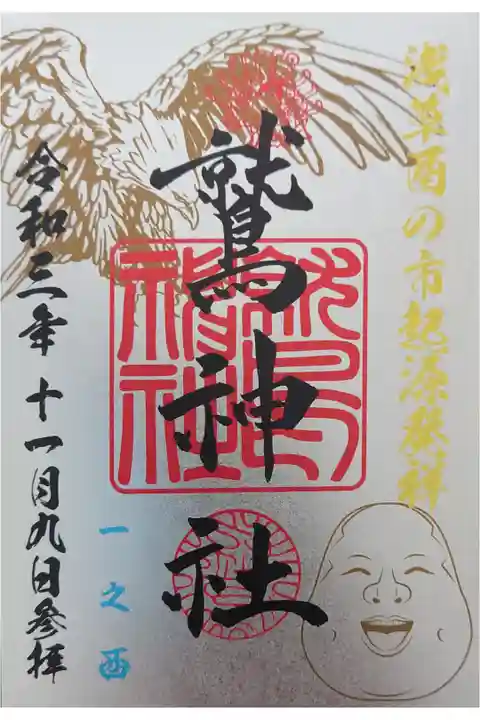 浅草酉の市起源発祥
鷲神社
一之酉
令和三年 十一月九日参拝